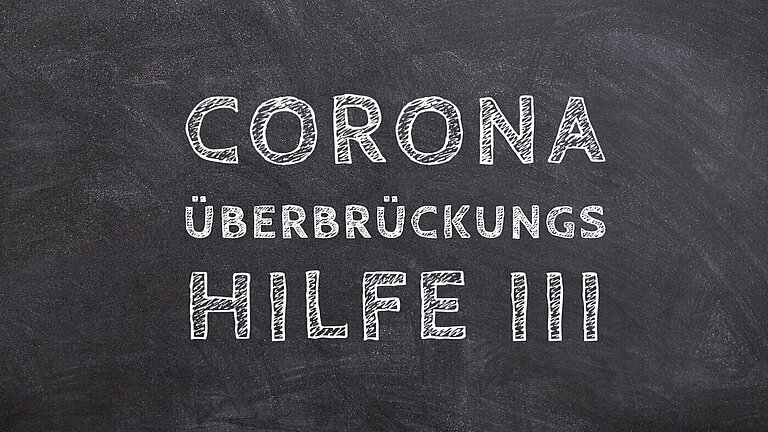 CORONA
ÜBERBRÜCKUNGS
HILFE III